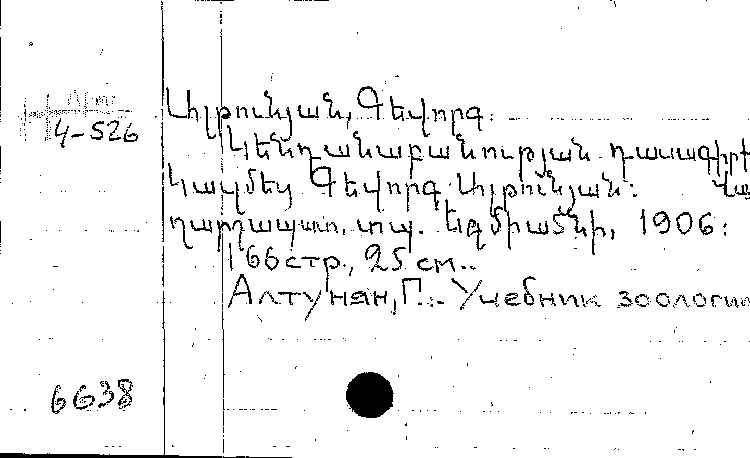 4-526
Ալթունյան, Գեվորգ.
Կենդանաբանության դասագիրք
Կազմեց Գեվորգ Ալթունյան: Վա
ղարշապատ, տպ. Եզմիածնի, 1906:
166 стр., 25 см..
Алтунян, Г.. Учебник зоологии
6638